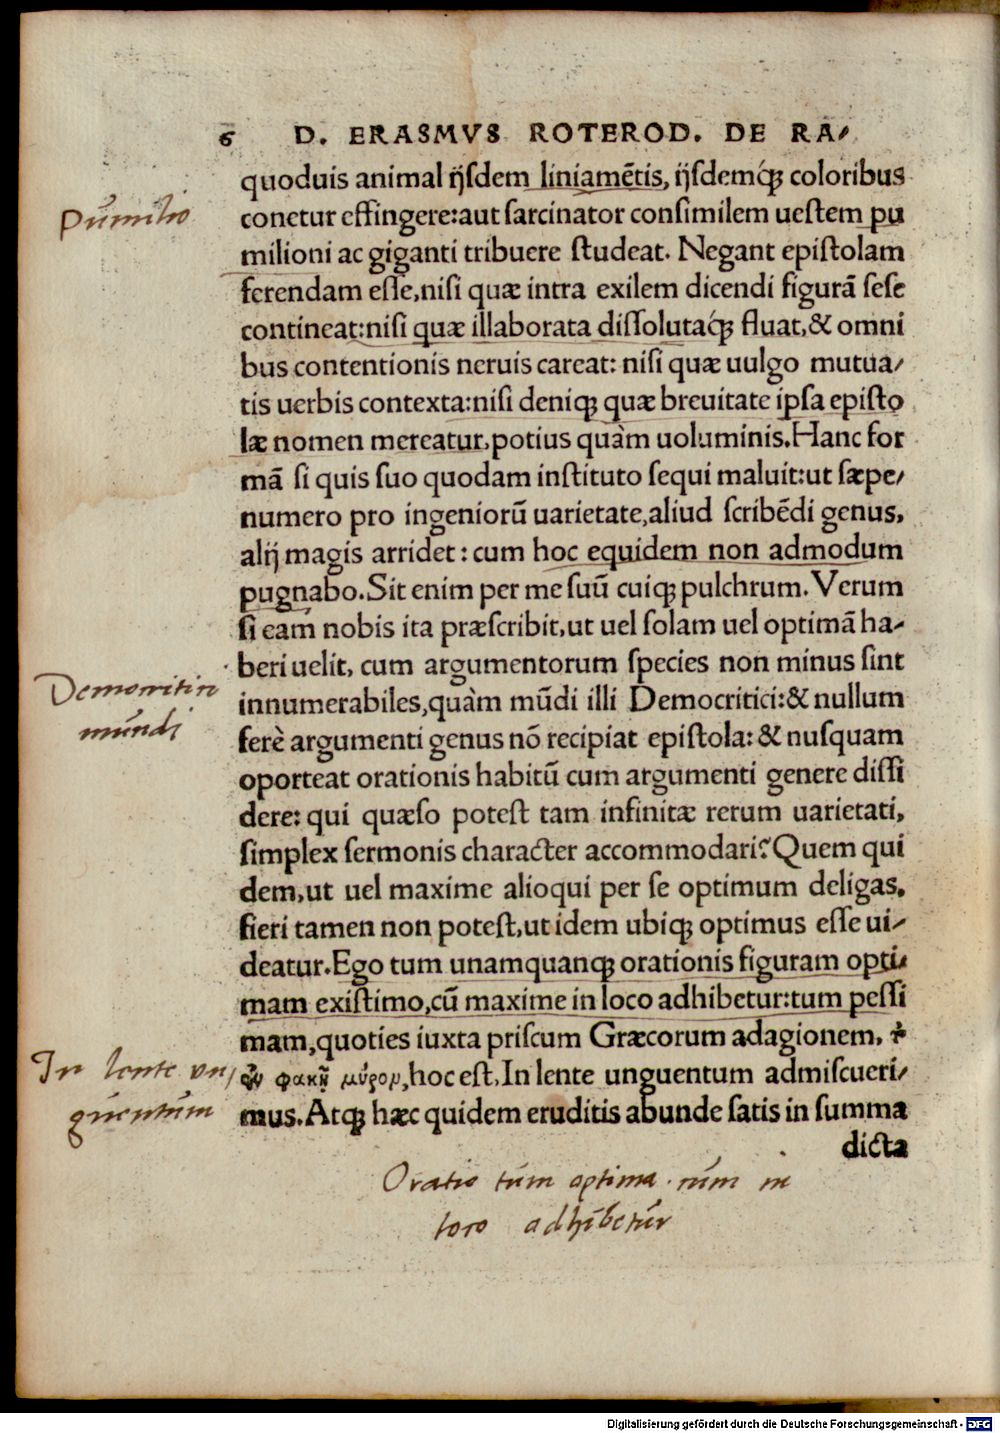 6 D. ERASMVS ROTEROD. DE RA-
quoduis animal ijsdem liniamẽtis, ijsdemq́; coloribus
conetur effingere:aut sarcinator consimilem uestem pu
Pumilio
milioni ac giganti tribuere studeat. Negant epistolam
ferendam esse,nisi quæ intra exilem dicendi figurã sese
contineat:nisi quæ illaborata dissolutaq́; fluat,& omni
bus contentionis neruis careat: nisi quæ uulgo mutua-
tis uerbis contexta:nisi deniq; quæ breuitate ipsa episto
læ nomen mereatur,potius quàm uoluminis.Hanc for
mã si quis suo quodam instituto sequi maluit:ut sæpe-
numero pro ingeniorũ uarietate,aliud scribẽdi genus,
alij magis arridet: cum hoc equidem non admodum
pugnabo.Sit enim per me suũ cuiq; pulchrum. Verum
si eam nobis ita præscribit,ut uel solam uel optimã ha-
beri uelit, cum argumentorum species non minus sint
Democritici
innumerabiles,quàm mũdi illi Democritici:& nullum
mundi
ferè argumenti genus nõ recipiat epistola: & nusquam
oporteat orationis habitũ cum argumenti genere dissi
dere: qui quæso potest tam infinitæ rerum uarietati,
simplex sermonis character accommodari? Quem qui
dem,ut uel maxime alioqui per se optimum deligas,
fieri tamen non potest,ut idem ubiq; optimus esse ui-
deatur.Ego tum unamquanq; orationis figuram opti-
mam existimo,cũ maxime in loco adhibetur:tum pessi
mam,quoties iuxta priscum Græcorum adagionem, τὸ
In lente vn
ἐν φακῇ μύρον,hoc est,In lente unguentum admiscueri-
guentum
mus.Atq; hæc quidem eruditis abunde satis in summa
dicta
Oratio tum optima. num in
loco adhibetur
Digitalisierung gefördert durch die Deutsche Forschungsgemeinschaft - DFG